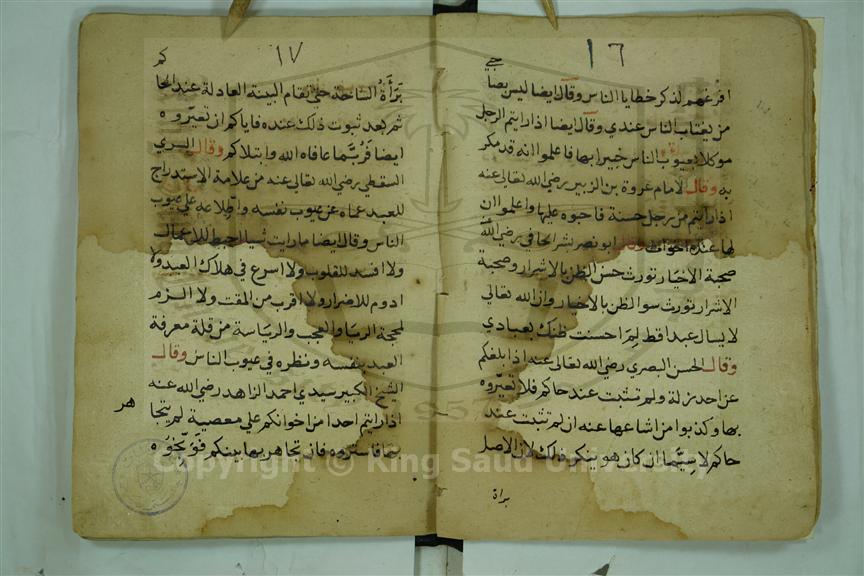 ١٦
افرغهم لذكر خطايا الناس وقال ايضا ليس يضا
من يغتاب الناس عندي وقال ايضا اذا رايتم الرجل
موكلا بعيوب الناس خبيرا بها فاعلموا انه قد مكر
به وقال الامام عروة بن الزبير رضي الله تعالى عنه
اذا رايتم من رجل حسنة فاحبوه عليها واعلموا ان
لها عنده اخوات وقال ابو نصر بشر الحافي رضي الله
صحبة الاخيار تورث حسن الظن بالاشرار وصحبة
الاشرار تورث سو الظن بالاخيار وان الله تعالى
لا يسال عبدا قط لم احسنت ظنك بعبادي
وقال الحسن البصري رضي الله تعالى عنه اذا بلغكم
عن احد زلة ولم تثبت عند حاكم فلا تعيّروه
بها وكذبوا من اشاعها عنه ان لم تثبت عند
حاكم لا سيّما ان كان هو ينكر ذلك لان الاصل
براة
١٧
بَرَأةُ الساحة حتى تقام البينة العادلة عند الحا
ثم بعد ثبوت ذلك عنده فاياكم ان تعيّروه
ايضا فربّما عافاه الله وابتلاكم وقال السري
السقطي رضي الله تعالى عنه من علامة الاستدراج
للعبد عماه عن عيوب نفسه واطلاعه على عيوب
الناس وقال ايضا ما رايت شيا احبط للاعمال
ولا افسد للقلوب ولا اسرع في هلاك العبد ولا
ادوم للاضرار ولا اقرب من المقت ولا الزم
لمحجة الريا والعجب والرياسة من قلة معرفة
العبد بنفسه ونظره في عيوب الناس وقال
الشيخ الكبير سيدي احمد الزاهد رضي الله عنه
اذا رايتم احدا من اخوانكم على معصية لم يتجا
هر
بها فاستروه فان تجاهر بها بينكم فوبّخوه
Copyright © King Saud University